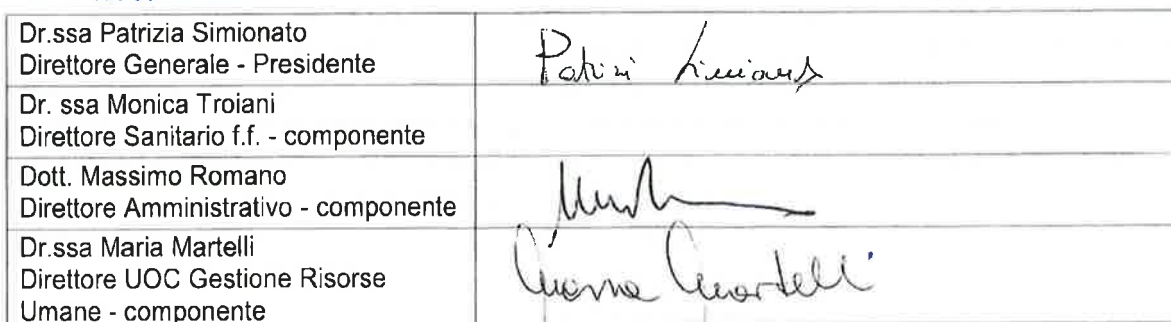 Dr.ssa Patrizia Simionato
Direttore Generale - Presidente
Dr. ssa Monica Troiani
Direttore Sanitario f.f. - componente
Dott. Massimo Romano
Direttore Amministrativo - componente
Dr.ssa Maria Martelli
Direttore UOC Gestione Risorse
Umane - componente
Martelli